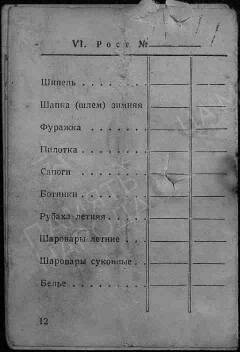 VI. Рост №
Шинель . . . . . . . .
Шапка (шлем) зимняя
Фуражка . . . . . . .
Пилотка . . . . . . .
Сапоги . . . . . . .
Ботинки . . . . . . .
Рубаха летняя . . . . .
Шаровары летние . . .
Шаровары суконные . .
Белье . . . . . . . .
12